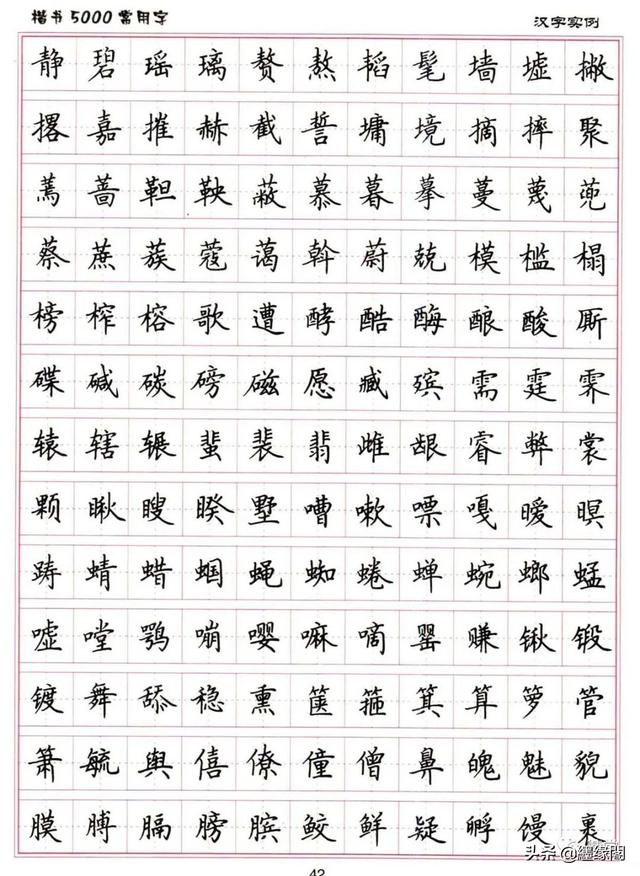 楷书5000常用字 汉字实例
静 碧 瑶 璃 赘 熬 韬 髦 墙 墟 撇
撂 嘉 摧 赫 截 誓 墉 境 摘 摔 聚
蔫 蔷 靼 鞅 蔽 慕 暮 摹 蔓 蔑 蔸
蔡 蔗 蔟 蔻 蔼 斡 蔚 兢 模 槛 榻
榜 榨 榕 歌 遭 酵 酷 酶 酿 酸 厮
碟 碱 碳 磅 磁 愿 臧 殡 需 霆 霁
辕 辖 辗 蜚 裴 翡 雌 龈 睿 弊 裳
颗 瞅 瞍 睽 墅 嘈 嗽 嘌 嘎 暧 暝
踌 蜻 蜡 蝈 蝇 蜘 蜷 蝉 蜿 螂 蜢
嘘 嘡 鹗 嘣 嘤 嘛 嘀 罂 赚 锹 锻
镀 舞 舔 稳 熏 箧 箍 箕 算 箩 管
箫 毓 舆 僖 僚 僮 僧 鼻 魄 魅 貌
膜 膊 膈 膀 膑 鲛 鲜 疑 孵 馒 裹
头条 @缠缘阁
42